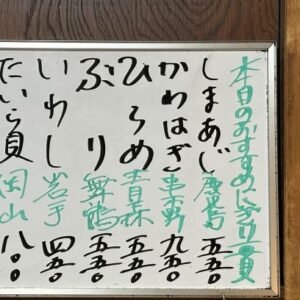 本日のおすすめにぎり一貫
しまあじ 鹿児島 五五〇
かわはぎ 長崎 九五〇
ひらめ 青森 五五〇
ぶり 舞鶴 五五〇
いわし 岩手 四五〇
たいら貝 岡山 八〇〇